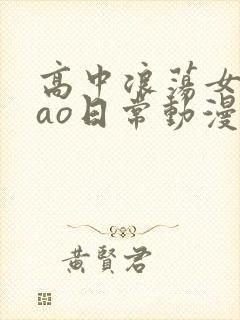 高中浪蕩女
ao日常動漫
黃賢君